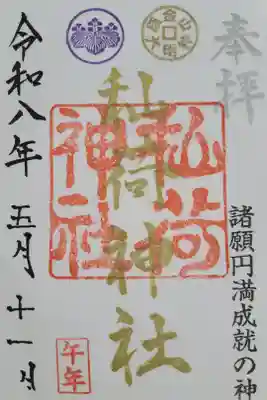 奉拝
諸願円満成就の神
荷神社
荷
神社
令和八年 五月 十一日
午年